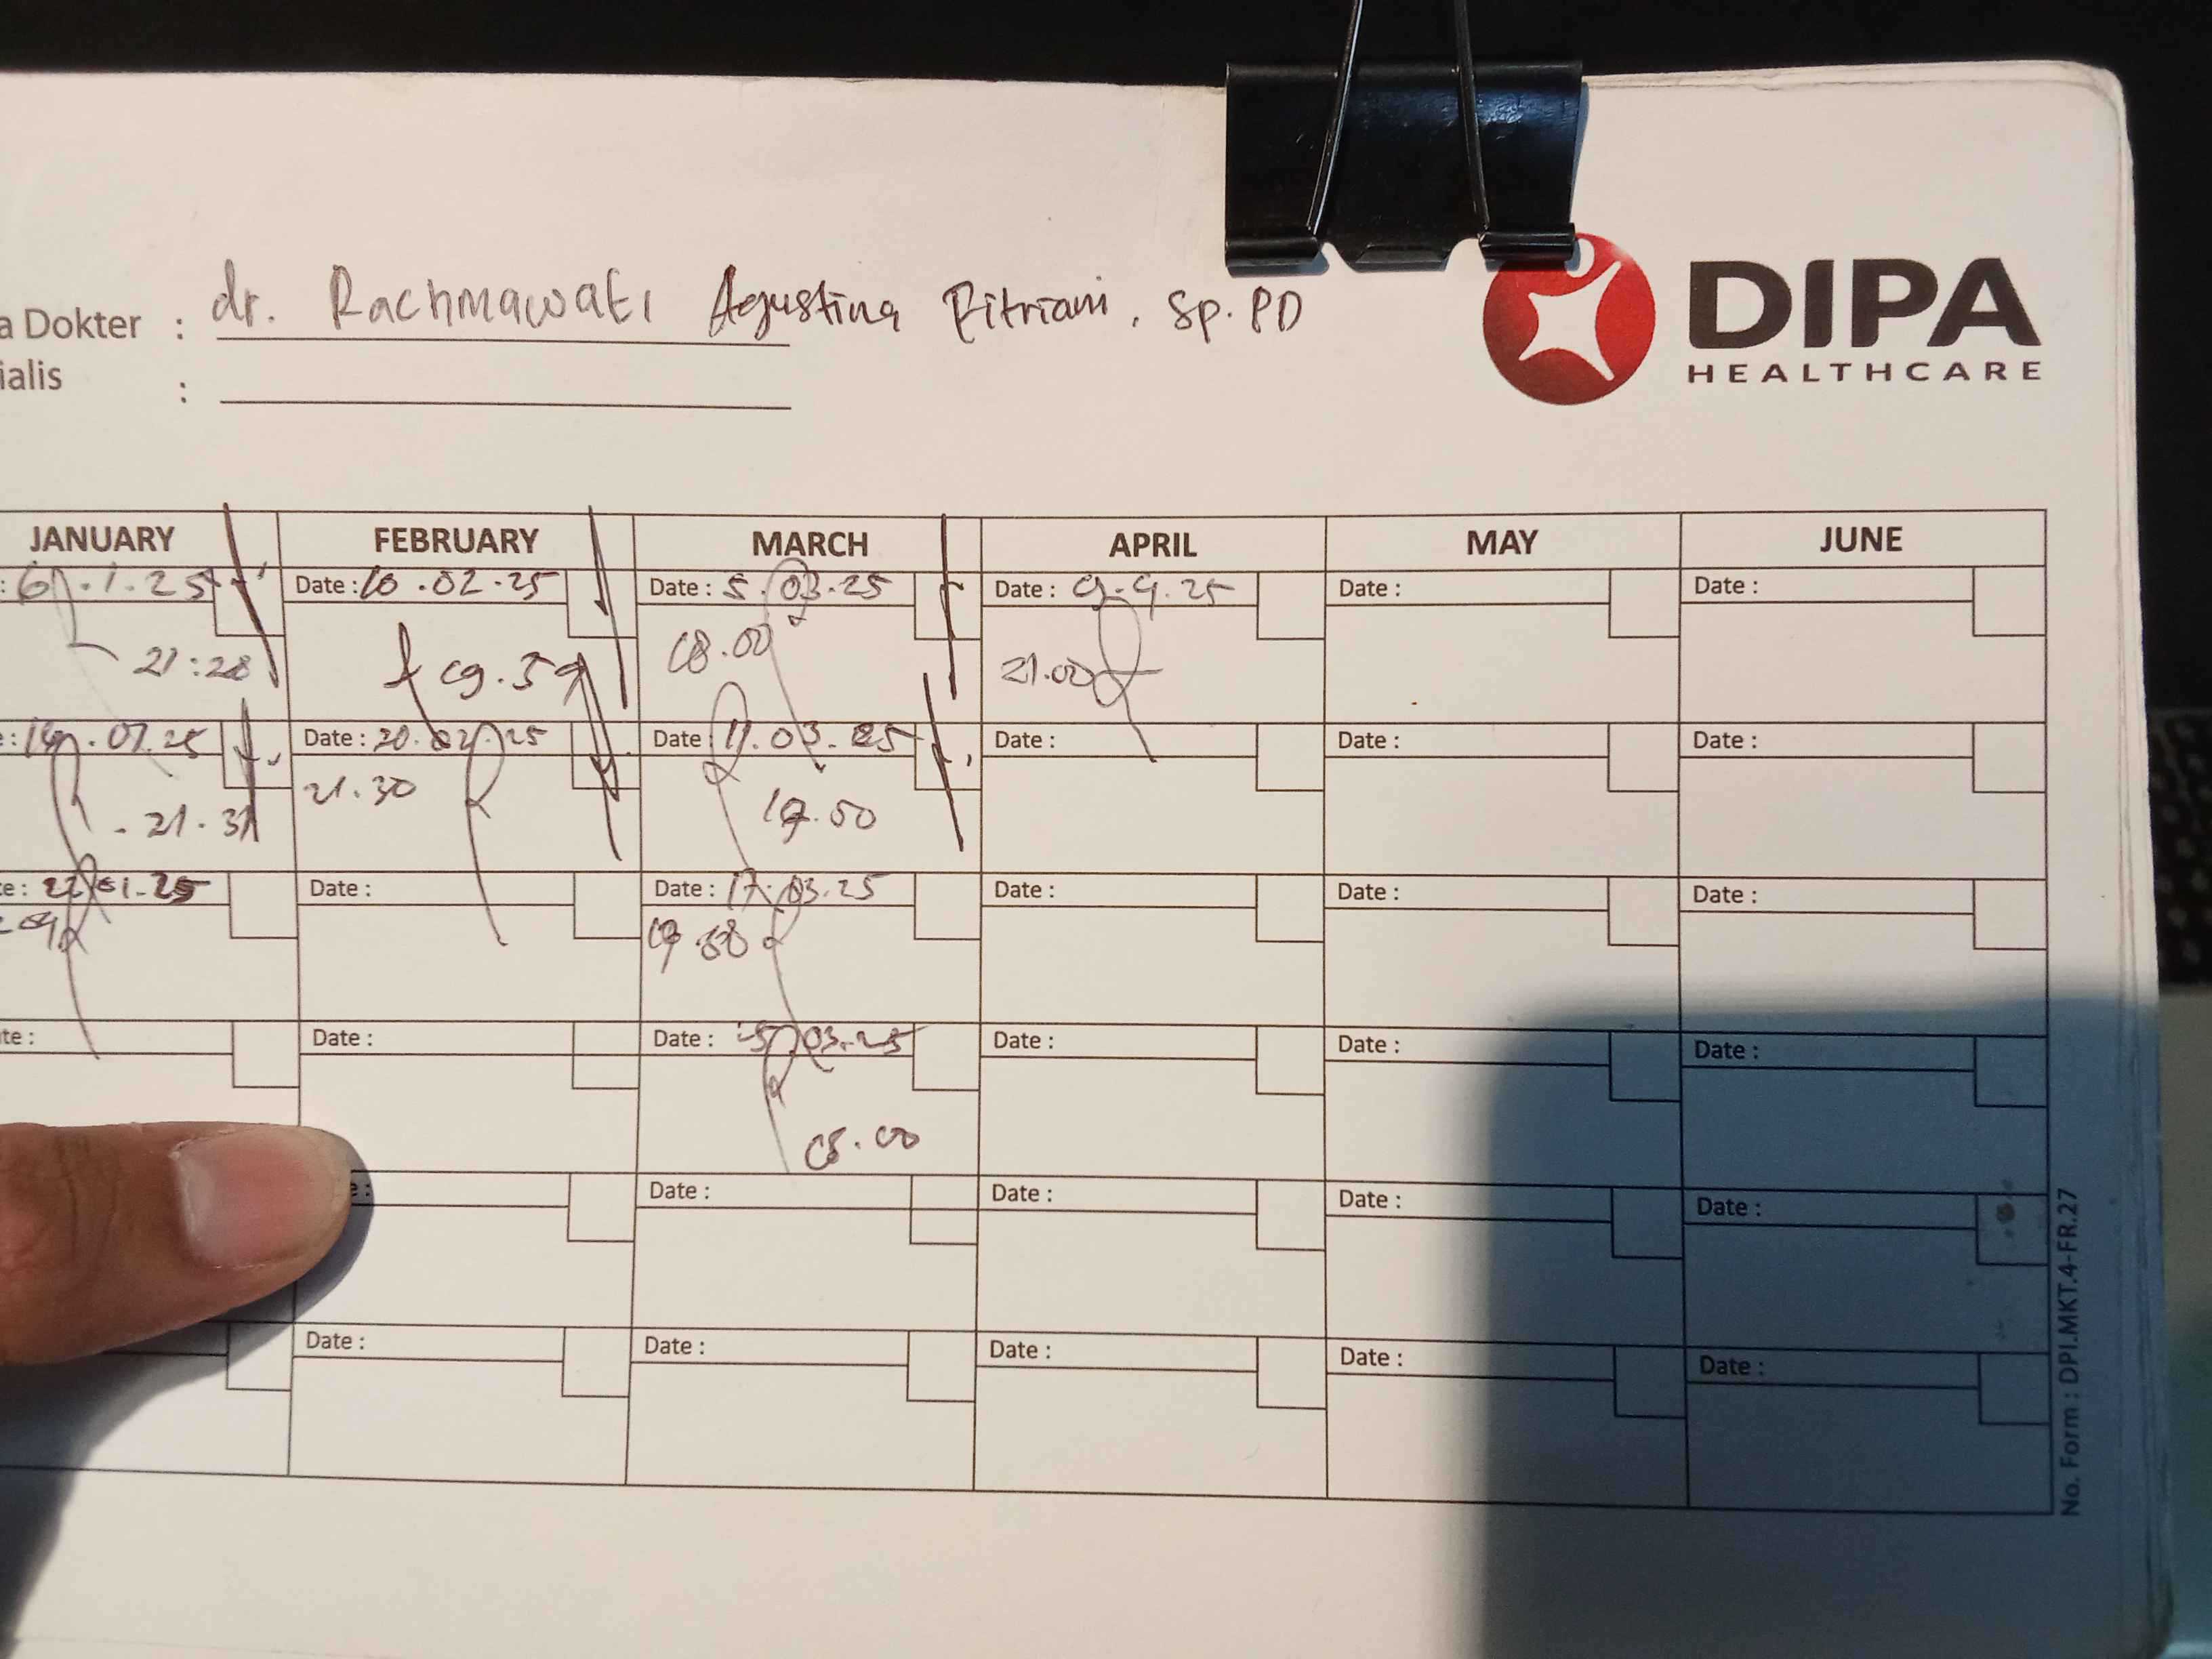 DIPA
HEALTHCARE
a Dokter : dr. Rachmawati Agustina Fitriani, Sp.PD
ialis :
JANUARY FEBRUARY MARCH APRIL MAY JUNE
: 6.1.25 Date : 10.02.25 Date : 5.03.25 Date : 9.4.25 Date : Date :
21:28 09.59 08.00 21.00
25 Date : 20.02.25 Date 11.03.25 Date : Date : Date :
21.31 21.30 19.00
te: 22.01.25 Date : Date : 17.03.25 Date : Date : Date :
te : Date : Date : 03.25 Date : Date : Date :
08.00
e : Date : Date : Date : Date :
Date : Date : Date : Date : Date :
No. Form : DPI.MKT.4-FR.27